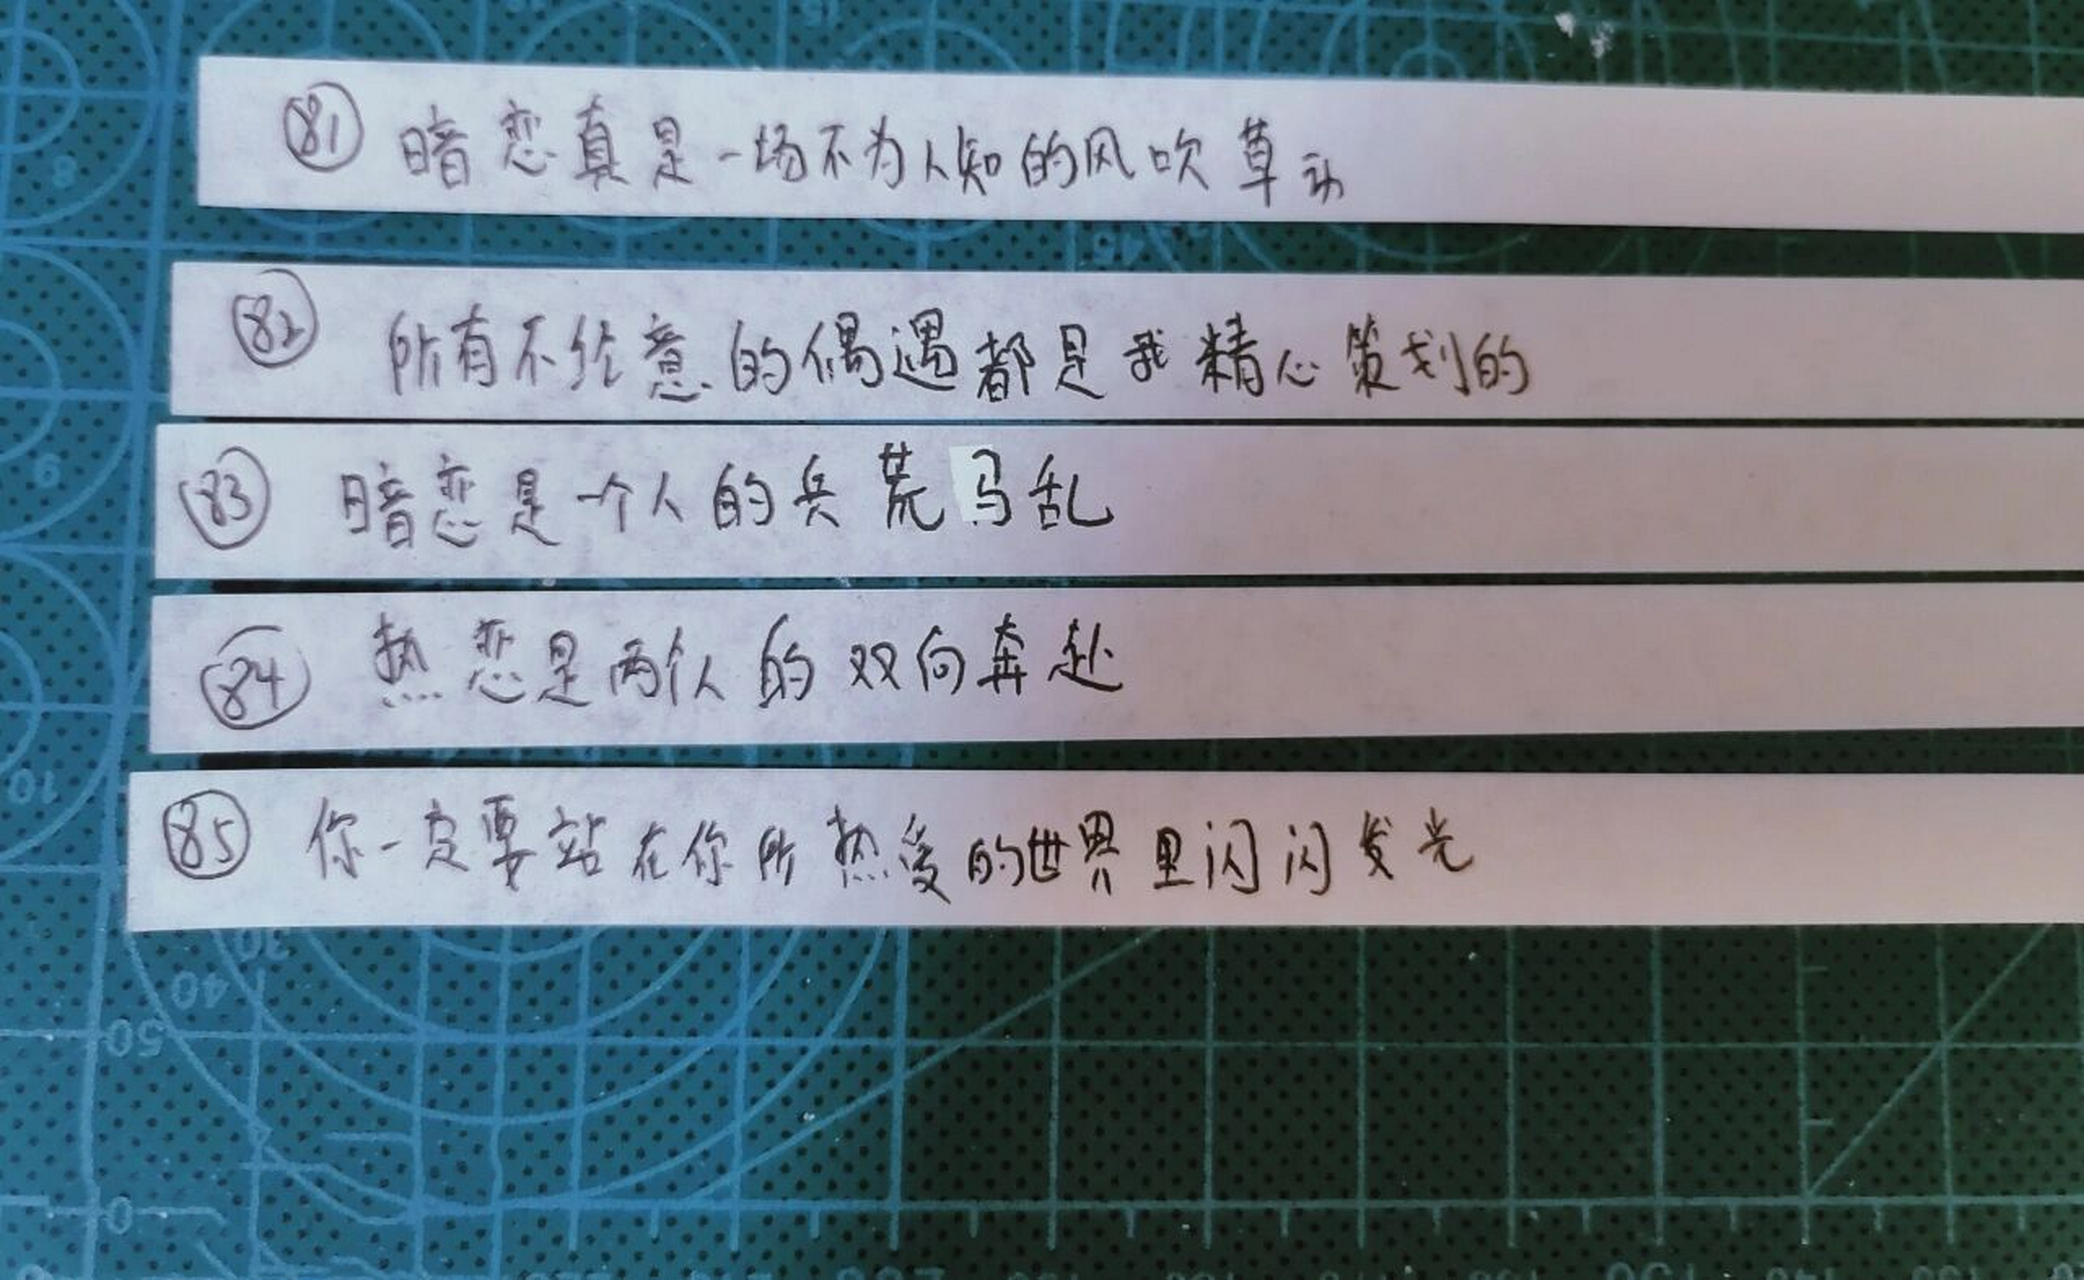 81 暗恋真是一场不为人知的风吹草动
82 所有不经意的偶遇都是我精心策划的
83 暗恋是一个人的兵荒马乱
84 热恋是两个人的双向奔赴
85 你一定要站在你所热爱的世界里闪闪发光
8
45
9
10
30
40
50
0